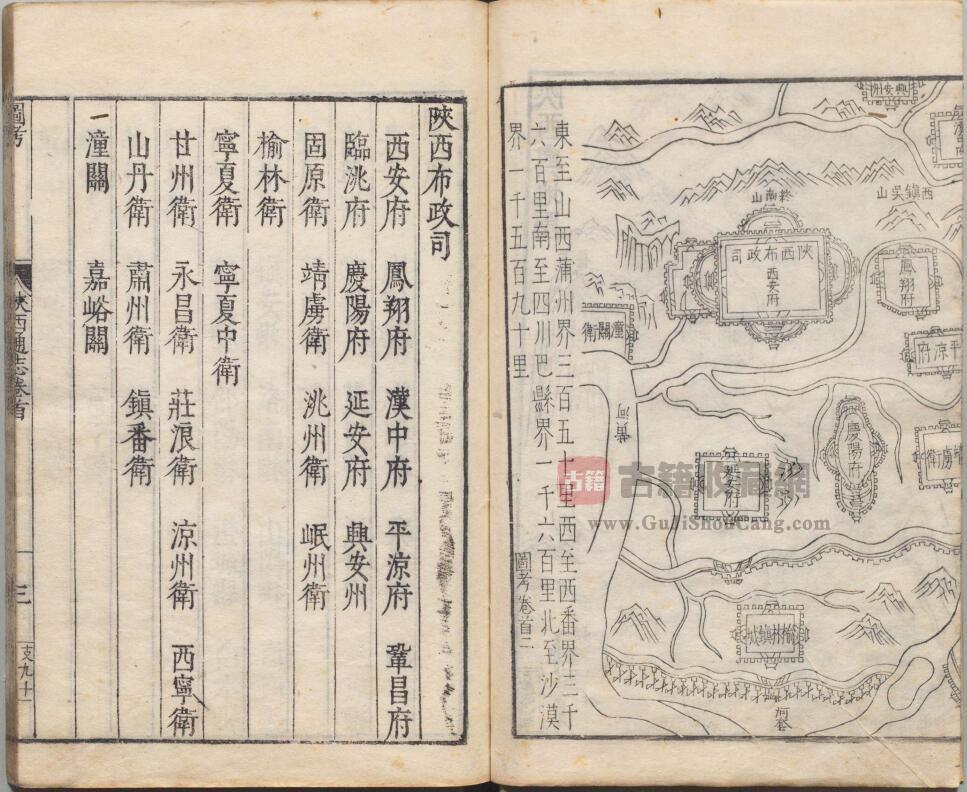 興安州
終南山
西鎮吳山
陝西布政司
西安府
鳳翔府
潼關衛
平凉府
黄河
慶陽府
延安府
榆林鎮城
河套
東至山西蒲州界三百五十里西至西番界三千
六百里南至四川巴縣界一千六百里北至沙漠
界一千五百九十里
圖考卷首二
古籍
古籍收藏網
www.GujiShouCang.com
陝西布政司
西安府 鳳翔府 漢中府 平凉府 鞏昌府
臨洮府 慶陽府 延安府 興安州
固原衛 靖虜衛 洮州衛 岷州衛
榆林衛
寧夏衛 寧夏中衛
甘州衛 永昌衛 莊浪衛 涼州衛 西寧衛
山丹衛 肅州衛 鎮番衛
潼關 嘉峪關
圖考
陝西通志卷首
三
支九十